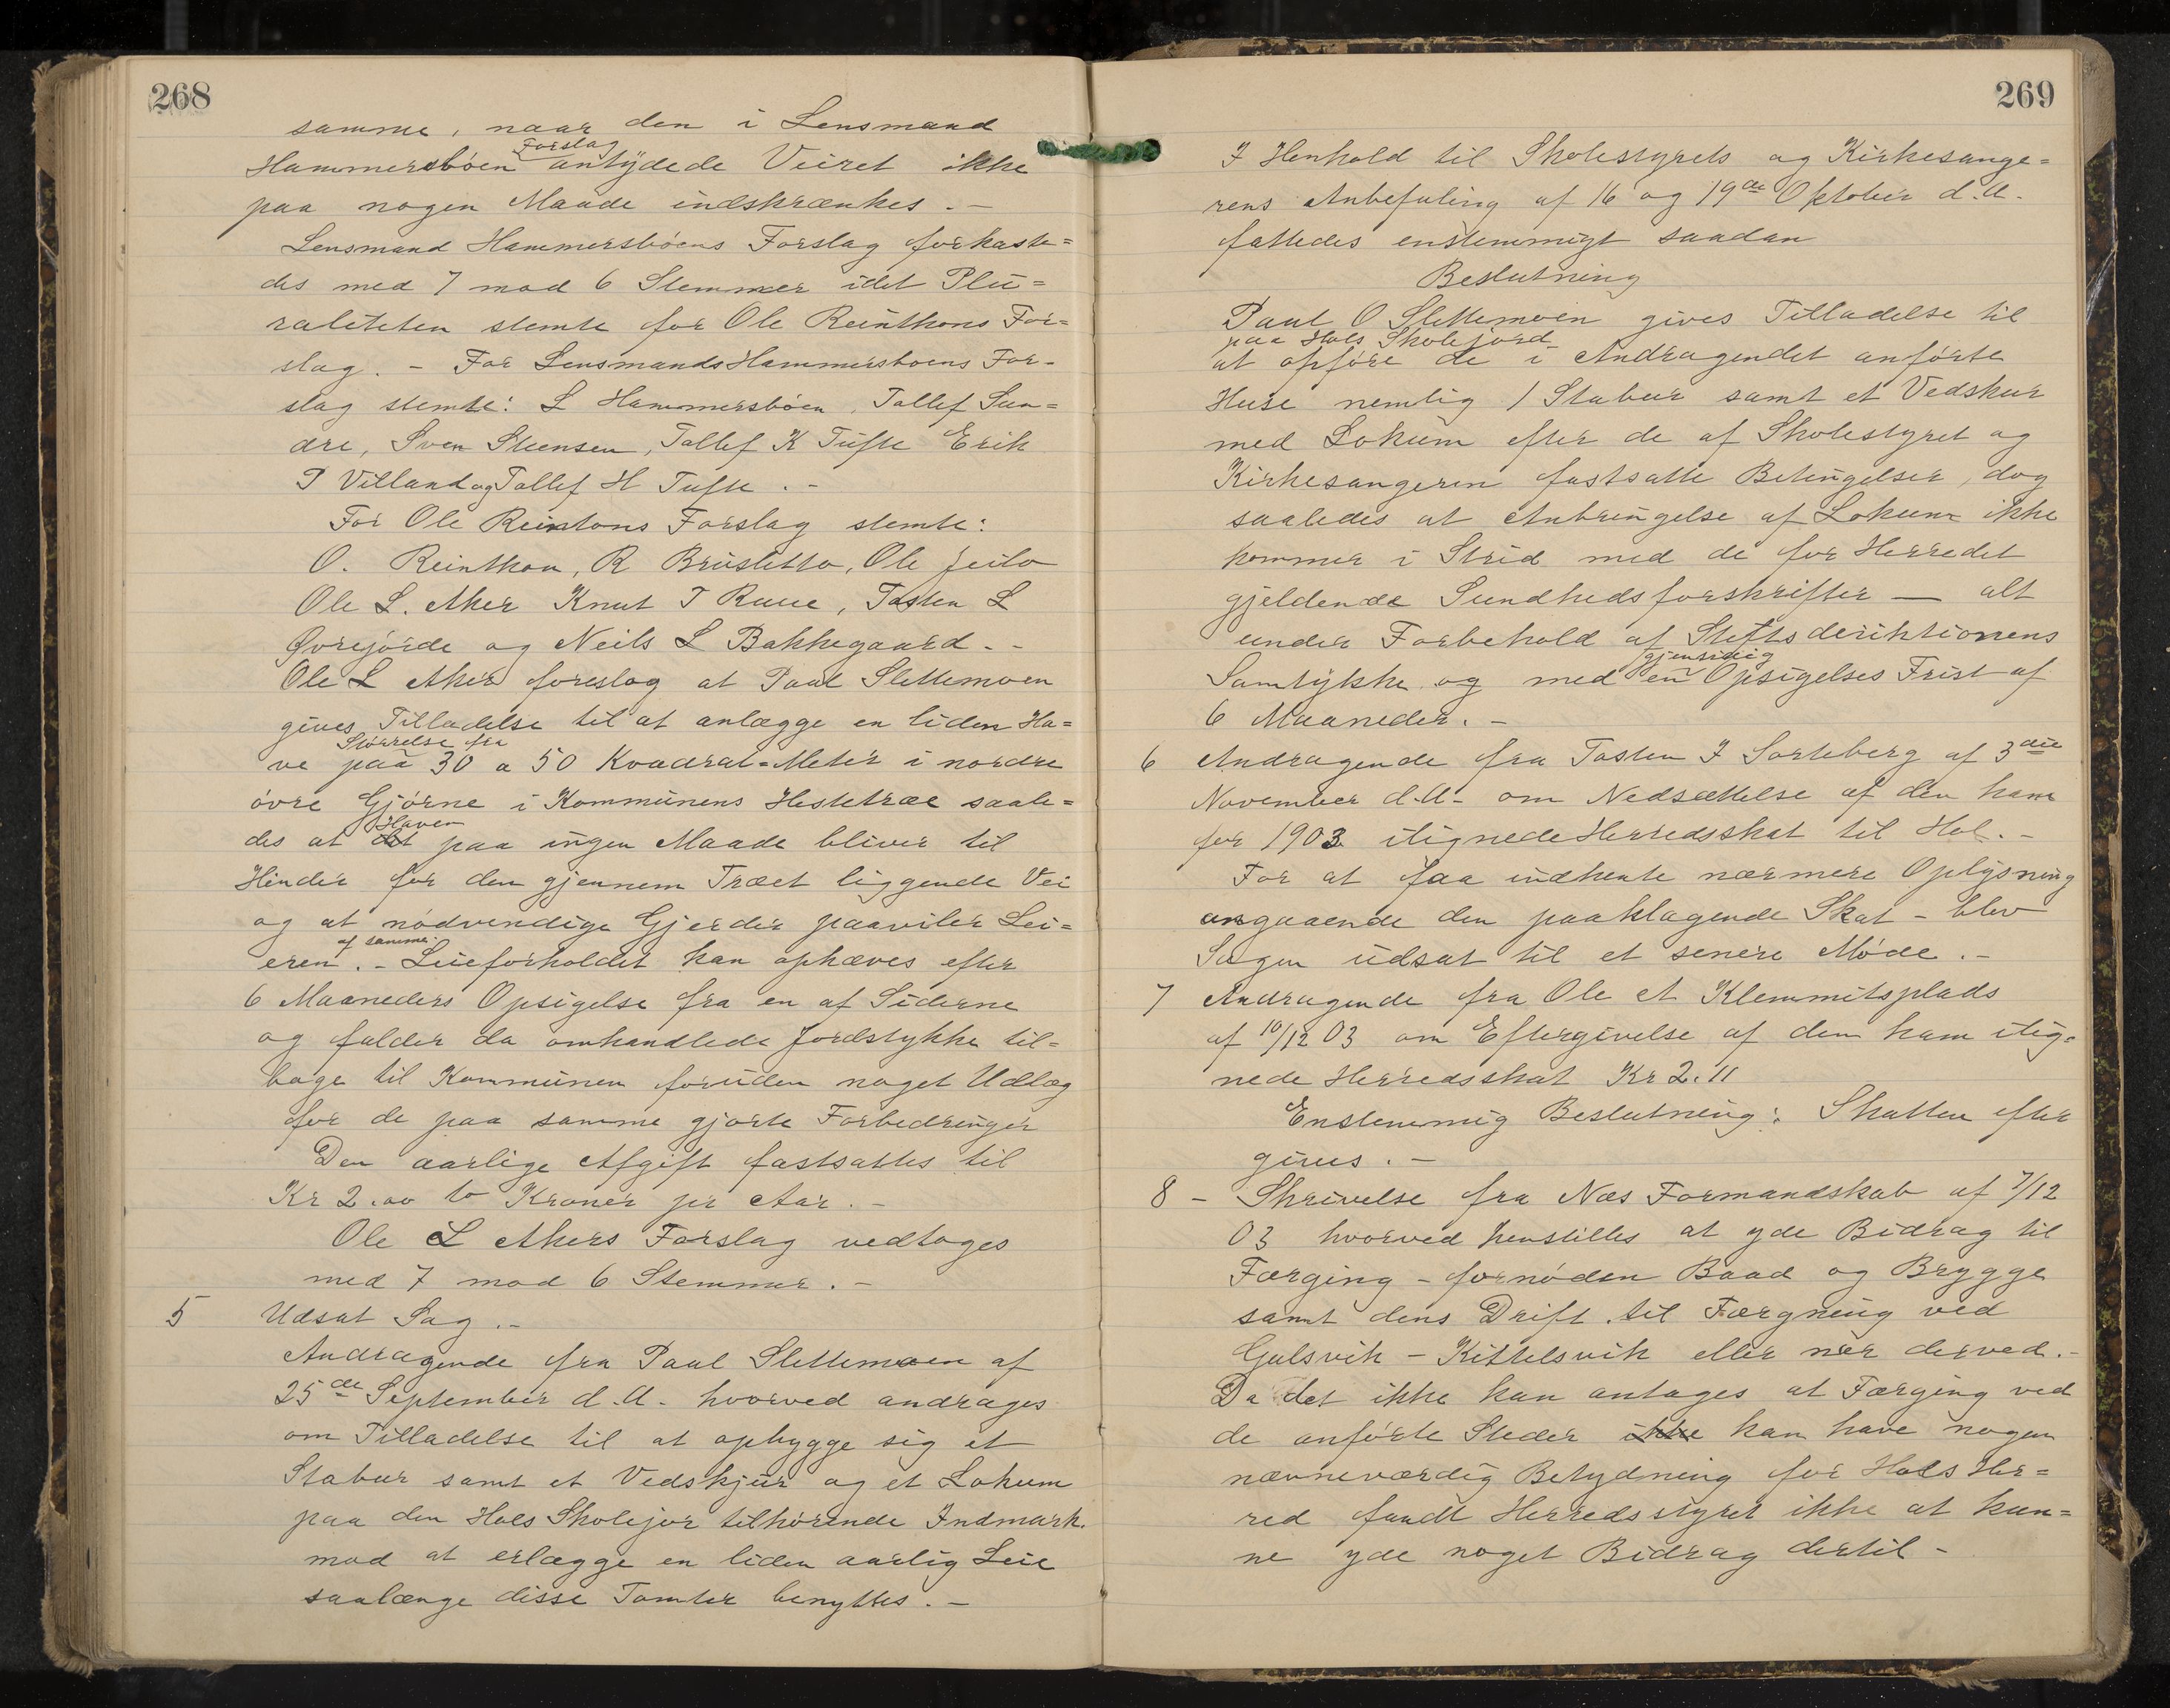 268
samme, naar den i Lensmand
Forslag
Hammersbøen antydede Veiret ikke
paa nogen Maade indskrænkes. -
Lensmand Hammersbøens Forslag forkaste=
des med 7 mod 6 Stemmer idet Plu=
raliteten stemte for Ole Reinthons For=
slag. - For Lensmands Hammersboens For-
slag stemte: L Hammersbøen, Tollef Sun=
dre, Sven Steensen, Tollef K Tufte Erik
P Villand og Tollef H Tufte. -
For Ole Reintons Forslag stemte:
O. Reinthon, R Brusletto, Ole Jeilo
Ole L. Aker Knut T Ruue, Tosten L
Øvrejorde og Neils L Bakkegaard. -
Ole L Aker foreslog at Paul Slettemoen
gives Tilladelse til at anlægge en liden Ha=
Størrelse fra
ve paa 30 a 50 Kvadrat=Meter i nordre
øvre Gjørne i Kommunens Hestetræe saale=
Haven
des at det paa ingen Maade bliver til
Hinder for den gjennem Træet liggende Vei
og at nødvendige Gjerder paaviler Lei=
af samme.
eren. - Leieforholdet kan ophæves efter
6 Maaneders Opsigelse fra en af Siderne
og falder da omhandlede Jordstykke til=
bage til Kommunen foruden noget Udlæg
for de paa samme gjorte Forbedringer
Den aarlige Afgift fastsattes til
Kr 2.00 to Kroner pr Aar. -
Ole L Akers Forslag vedtoges
med 7 mod 6 Stemmer. -
5 Udsat Sag. -
Andragende fra Paul Slettemoen af
25de September d.A. hvorved andrages
om Tilladelse til at opbygge sig et
Stabur samt et Vedskjur og et Lokum
paa den Hols Skolejor tilhørende Indmark.
mod at erlægge en liden aarlig Leie
saalænge disse Tomter benyttes. -
269
I Henhold til Skolestyrets og Kirkesange=
rens Anbefaling af 16 og 19de Oktober d.A.
fattedes enstemmigt saadan
Beslutning
Paul O Slettemoen gives Tilladelse til
paa Hols Skolejord
at opføre de i Andragendet anførte
Huse nemlig 1 Stabur samt et Vedskur
med Lokum efter de af Skolestyret og
Kirkesangeren fastsatte Betingelser, dog
saaledes at Anbringelse af Lokum ikke
kommer i Strid med de for Herredet
gjeldende Sundhedsforskrifter — alt
under Forbehold af Stiftsderiktionens
gjensidig
Samtykke og med en Opsigelses Frist af
6 Maaneder. -
6 Andragende fra Tosten I Sorteberg af 3die
November d.A. om Nedsættelse af den ham
for 1903 ilignede Herredsskat til Hol. -
For at faa indhente nærmere Oplysning
angaaende den paaklagende Skat - blev
Sagen udsat til et senere Møde. -
7 Andragende fra Ole A Klemmitsplads
af 10/12 03 om Eftergivelse af den ham ilig=
nede Herredsskat Kr 2.11
Enstemmig Beslutning: Skatten efter
gives. -
8 - Skrivelse fra Næs Formandskab af 7/12
03 hvorved henstilles at yde Bidrag til
Færging - fornøden Baad og Brygge
samt dens Drift til Færgning ved
Gulsvik - Kittelsvik eller nær derved. -
Da det ikke kan antages at Færging ved
de anførte Steder ikke kan have nogen
nævneværdig Betydning for Hols Her=
red fandt Herredsstyret ikke at kun=
ne yde noget Bidrag dertil -